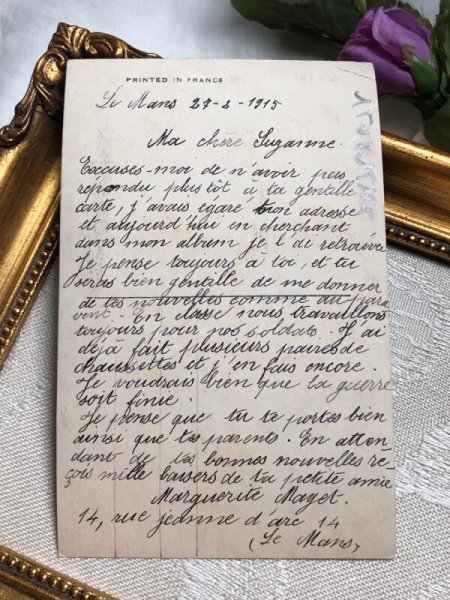 PRINTED IN FRANCE
Le Mans 27-2-1915
Ma chère Suzanne.
Excuses-moi de n'avoir pas
répondu plustôt à ta gentille
carte, j'avais égaré ton adresse
et aujourd'hui en cherchant
dans mon album je l'ai retrouvée
Je pense toujours à toi, et tu
seras bien gentille de me donner
de tes nouvelles comme au para
vent. En classe nous travaillons
toujours pour nos soldats. J'ai
déjà fait plusieurs paires de
chaussettes et j'en fais encore.
Je voudrais bien que la guerre
soit finie.
Je pense que tu te portes bien
ainsi que tes parents. En atten
dant de tes bonnes nouvelles re-
çois mille baisers de ta petite amie
Marguerite Maget.
14, rue jeanne d'arc 14
(Le Mans)